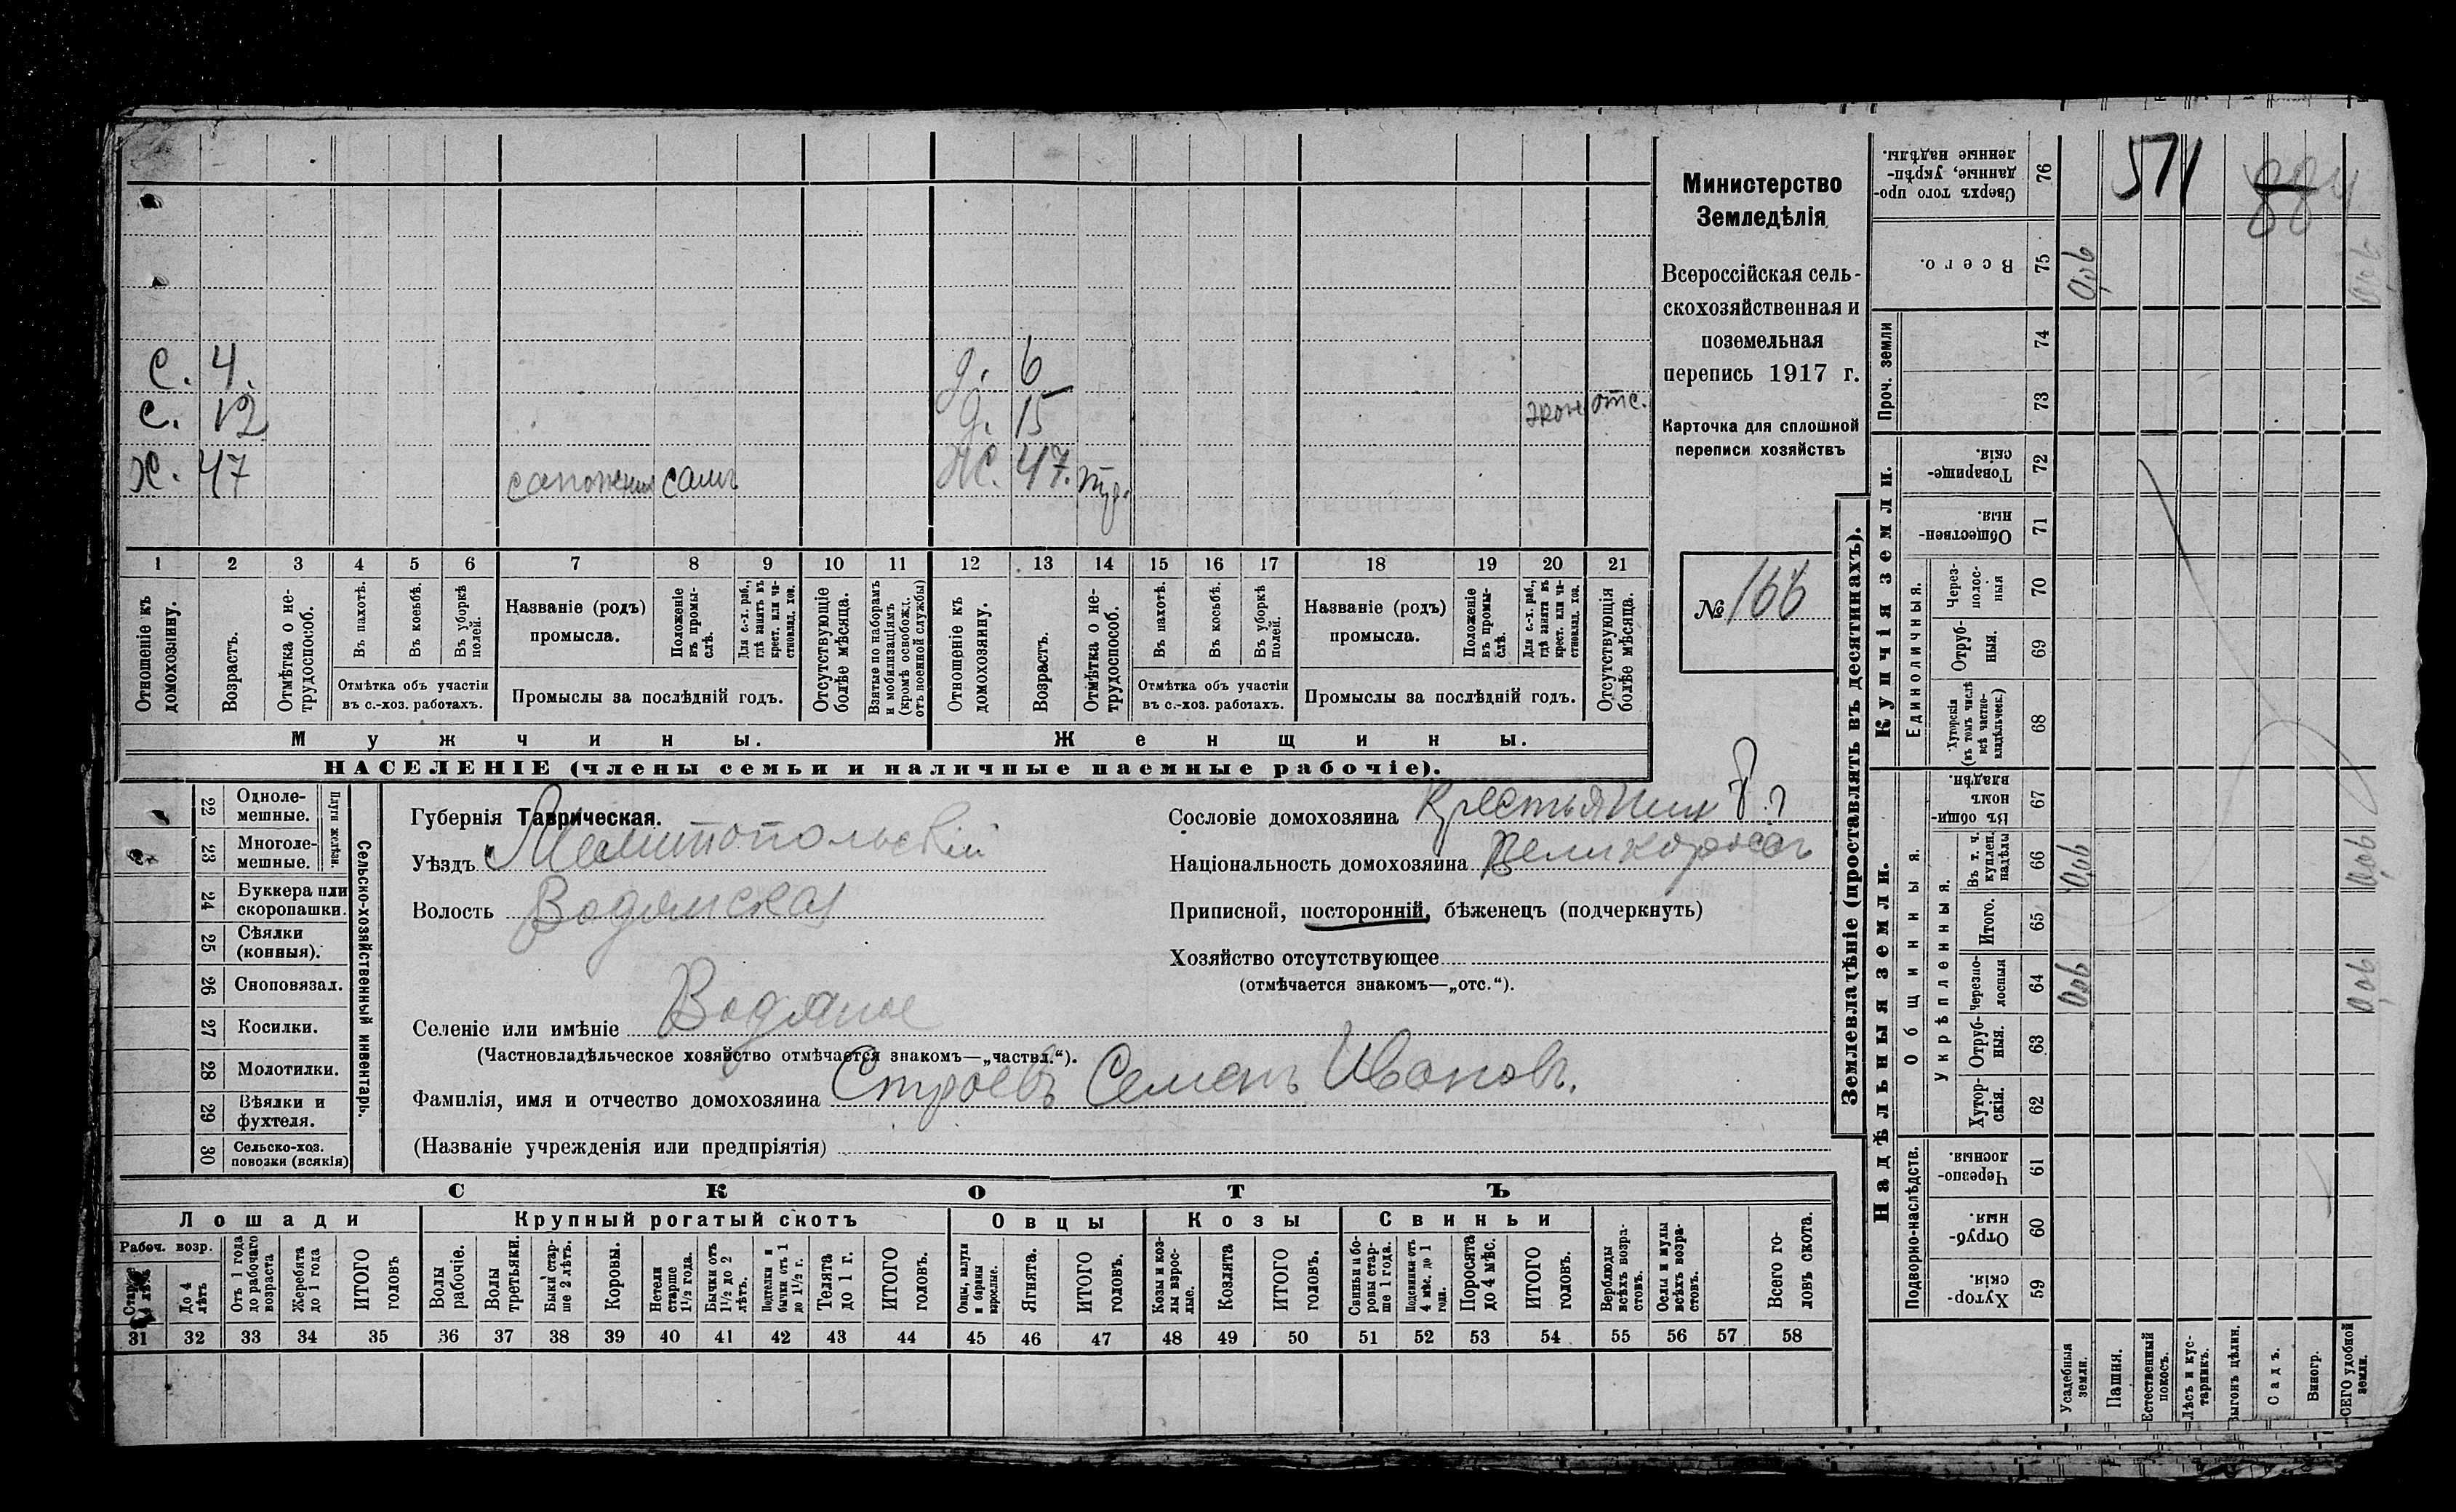 Министерство
Земледѣлія
Всероссійская сель-
скохозяйственная и
поземельная
перепись 1917 г.
Карточка для сплошной
переписи хозяйствъ
№ 166
С. 4. д. 6
С. 12 д. 15 экон отс.
Х. 47 сам Ж. 47.
1 2 3 4 5 6 7 8 9 10 11 12 13 14 15 16 17 18 19 20 21
Отношеніе къ домохозяину.
Возрастъ.
Отмѣтка о не-трудоспособ.
Въ пахотѣ.
Въ косьбѣ.
Въ уборкѣ полей.
Отмѣтка объ участіи
въ с.-хоз. работахъ.
Названіе (родъ)
промысла.
Положеніе въ промы-слѣ.
Для с.-х. раб., гдѣ занятъ въ крест. или ча-стновлад. хоз.
Промыслы за послѣдній годъ.
Отсутствующіе болѣе мѣсяца.
Взятые по наборамъ и мобилизаціямъ (кромѣ освобожд. отъ военной службы)
Отношеніе къ домохозяину.
Возрастъ.
Отмѣтка о не-трудоспособ.
Въ пахотѣ.
Въ косьбѣ.
Въ уборкѣ полей.
Отмѣтка объ участіи
въ с.-хоз. работахъ.
Названіе (родъ)
промысла.
Положеніе въ промы-слѣ.
Для с.-х. раб., гдѣ занята въ крест. или ча-стновлад. хоз.
Промыслы за послѣдній годъ.
Отсутствующія болѣе мѣсяца.
Мужчины. Женщины.
НАСЕЛЕНІЕ (члены семьи и наличные наемные рабочіе).
Сельско-хозяйственный инвентарь.
Плуги желѣзн.
22 Одноле-мешные.
23 Многоле-мешные.
24 Буккера или скоропашки.
25 Сѣялки (конныя).
26 Сноповязал.
27 Косилки.
28 Молотилки.
29 Вѣялки и фухтеля.
30 Сельско-хоз. повозки (всякія)
Губернія Таврическая.
Уѣздъ Мелитопольскій
Волость Водянская
Селеніе или имѣніе Водяное
(Частновладѣльческое хозяйство отмѣчается знакомъ—„частвл.“).
Фамилія, имя и отчество домохозяина Строевъ Семенъ Ивановъ.
(Названіе учрежденія или предпріятія)
Сословіе домохозяина Крестьянин
Національность домохозяина Великороссъ
Приписной, посторонній, бѣженецъ (подчеркнуть)
Хозяйство отсутствующее
(отмѣчается знакомъ—„отс.“).
СКОТЪ
Лошади Крупный рогатый скотъ Овцы Козы Свиньи
Рабоч. возр.
До 4 лѣтъ
Отъ 1 года до рабочаго возраста
Жеребята до 1 года
ИТОГО головъ
Волы рабочіе.
Волы третьяки.
Быки стар-ше 2 лѣтъ.
Коровы.
Нетели старше 1½ года.
Бычки отъ 1½ до 2 лѣтъ.
Подтелки и бычки отъ 1 до 1½ г.
Телята до 1 г.
ИТОГО головъ.
Овцы, валухи и бараны взрослые.
Ягнята.
ИТОГО головъ.
Козы и коз-лы взрос-лые.
Козлята
ИТОГО головъ.
Свиньи и бо-ровы стар-ше 1 года.
Подсвинки отъ 4 мѣс. до 1 года.
Поросята до 4 мѣс.
ИТОГО головъ.
Верблюды всѣхъ возра-стовъ.
Ослы и мулы всѣхъ возра-стовъ.
Всего го-ловъ скота.
31 32 33 34 35 36 37 38 39 40 41 42 43 44 45 46 47 48 49 50 51 52 53 54 55 56 57 58
Землевладѣніе (проставлять въ десятинахъ).
Надѣльныя земли.
Подворно-наслѣдств.
59 Хутор-скія.
60 Отруб-ныя.
61 Черезпо-лосныя.
Общинныя.
Укрѣпленныя.
62 Хутор-скія.
63 Отруб-ныя.
64 Черезпо-лосныя
65 Итого.
66 Въ т. ч. куплен. надѣлы
67 Въ общин-номъ владѣн.
Купчія земли.
Единоличныя.
68 Хуторскія (въ томъ числѣ всѣ частно-владѣльческ.)
69 Отруб-ныя.
70 Через-полос-ныя
71 Обществен-ныя.
72 Товарище-скія.
Проч. земли
73
74
75 Всего.
76 Сверхъ того про-данные, укрѣп-ленные надѣлы.
Усадебныя земли.
Пашня.
Естественный покосъ.
Лѣсъ и кус-тарникъ.
Выгонъ цѣлин.
Садъ.
Виногр.
СЕГО удобной земли.
0,06 0,06
0,06 0,06
0,06 0,06
571
884